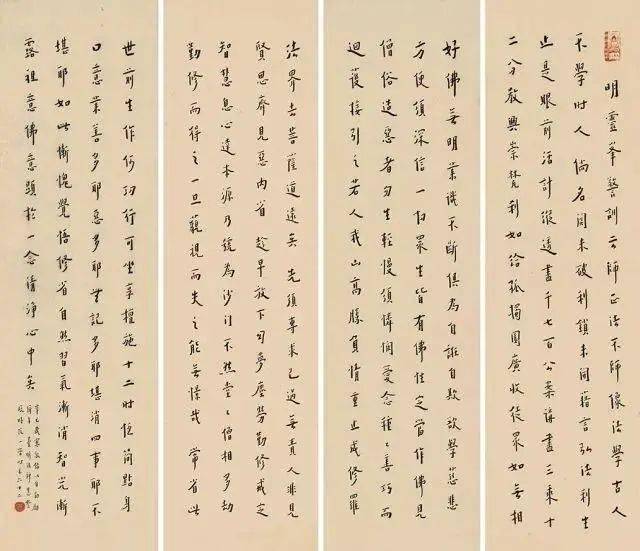 明靈峯警訓云師正法不師像法學古人
不學時人倘名關未破利鎖未開藉言弘法利生
止是眼前活計縱透盡千七百公案講盡三乘十
二分教興崇梵剎如給孤獨園廣收徒眾如無相
好佛無明業識不斷俱為自誑自欺欲學慈悲
方便須深信一切眾生皆有佛性定當作佛見
僧俗造惡者勿生輕慢須憐愍愛念種種善巧而
迴護接引之若人我山高勝負情重止成修羅
法界去菩薩道遠矣先須專求己過毋責人非見
賢思齊見惡內省趁早放下幻夢塵勞勤修戒定
智慧息心達本源乃號為沙門不然堂〻僧相多劫
勤修而得之一旦藐視而失之能無悵哉常省此
世前生作何功行可坐享檀施十二時簡點身
口意業善多耶惡多耶無記多耶堪消四事耶不
堪耶如此慚愧覺悟修省自然習氣漸消智光漸
露祖意佛意顯於一念清淨心中矣
辛巳歲寒